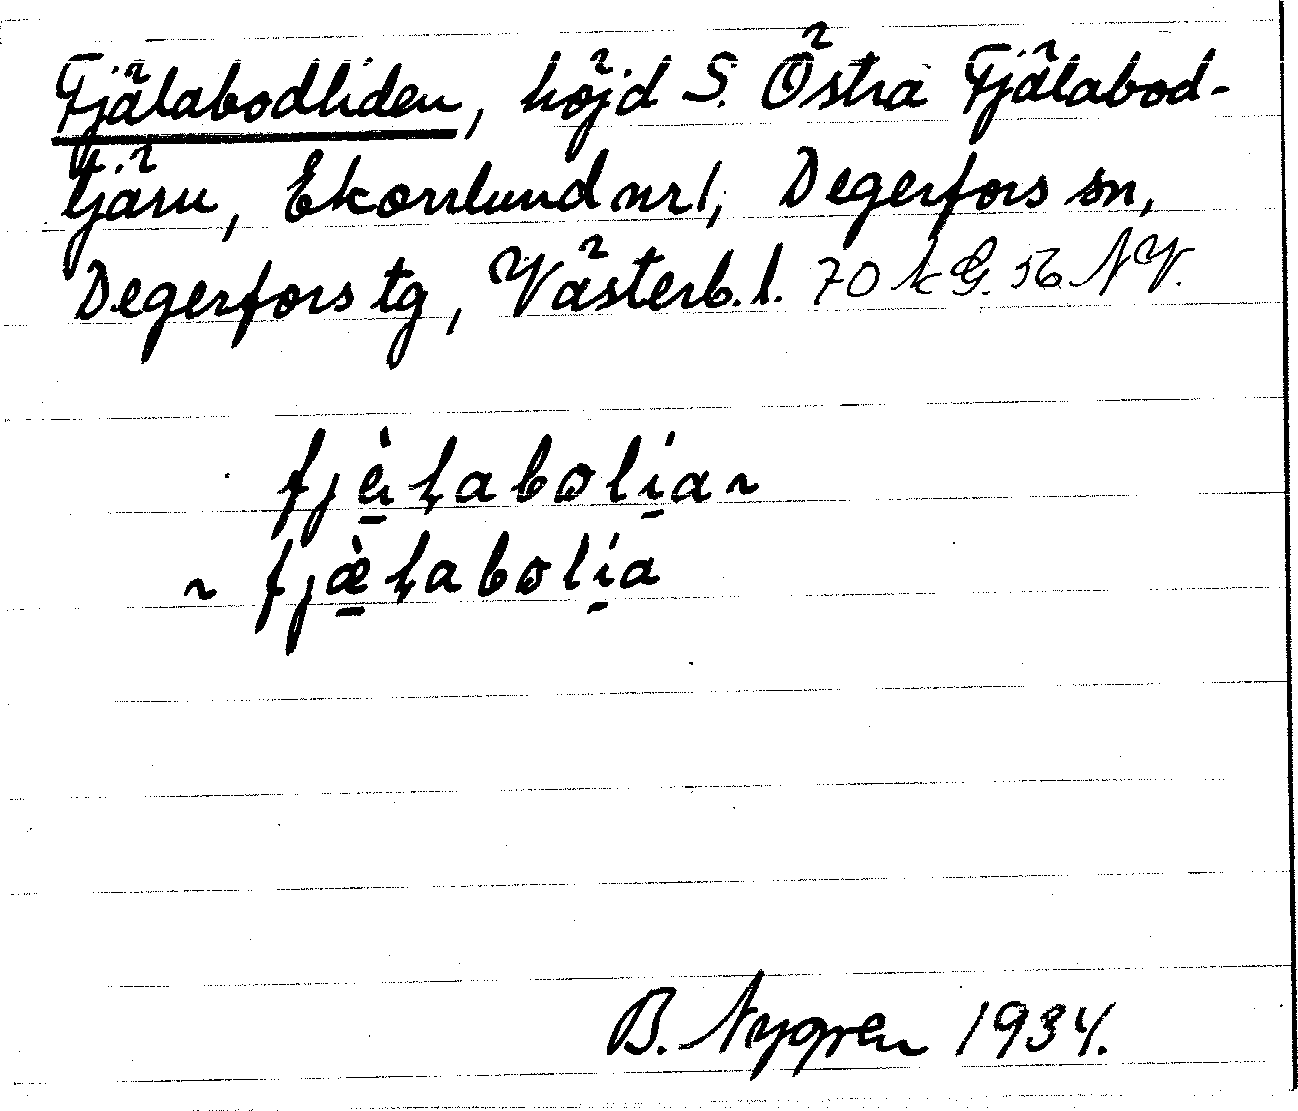 Fjälabodliden, höjd S. Östra Fjälabod-
tjärn, Ekorrlund nr 1, Degerfors sn,
Degerfors tg, Västerb. l. 70 k G. 56 NV.
fjὲɫabωli̱a ~
~ fjæ̱̀ɫabωli̱a
B. Nygren 1934.